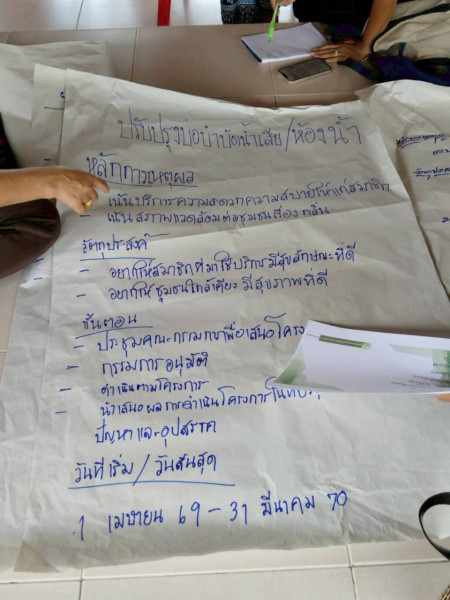 ปรับปรุงบ่อบำบัดน้ำเสีย/ห้องน้ำ
หลักการเหตุผล
- เน้นบริการความสะดวกความสบายให้แก่สมาชิก
- เน้นสภาพแวดล้อมต่อชุมชนเรื่องกลิ่น
วัตถุประสงค์
- อยากให้สมาชิกที่มาใช้บริการมีสุขลักษณะที่ดี
- อยากให้ชุมชนใกล้เคียงมีสุขภาพที่ดี
ขั้นตอน
- ประชุมคณะกรรมการเพื่อเสนอโครง
- กรรมการอนุมัติ
- ดำเนินตามโครงการ
- นำเสนอผลการดำเนินโครงการในที่ประ
ปัญหาและอุปสรรค
วันที่เริ่ม/วันสิ้นสุด
1 เมษายน 69 - 31 มีนาคม 70